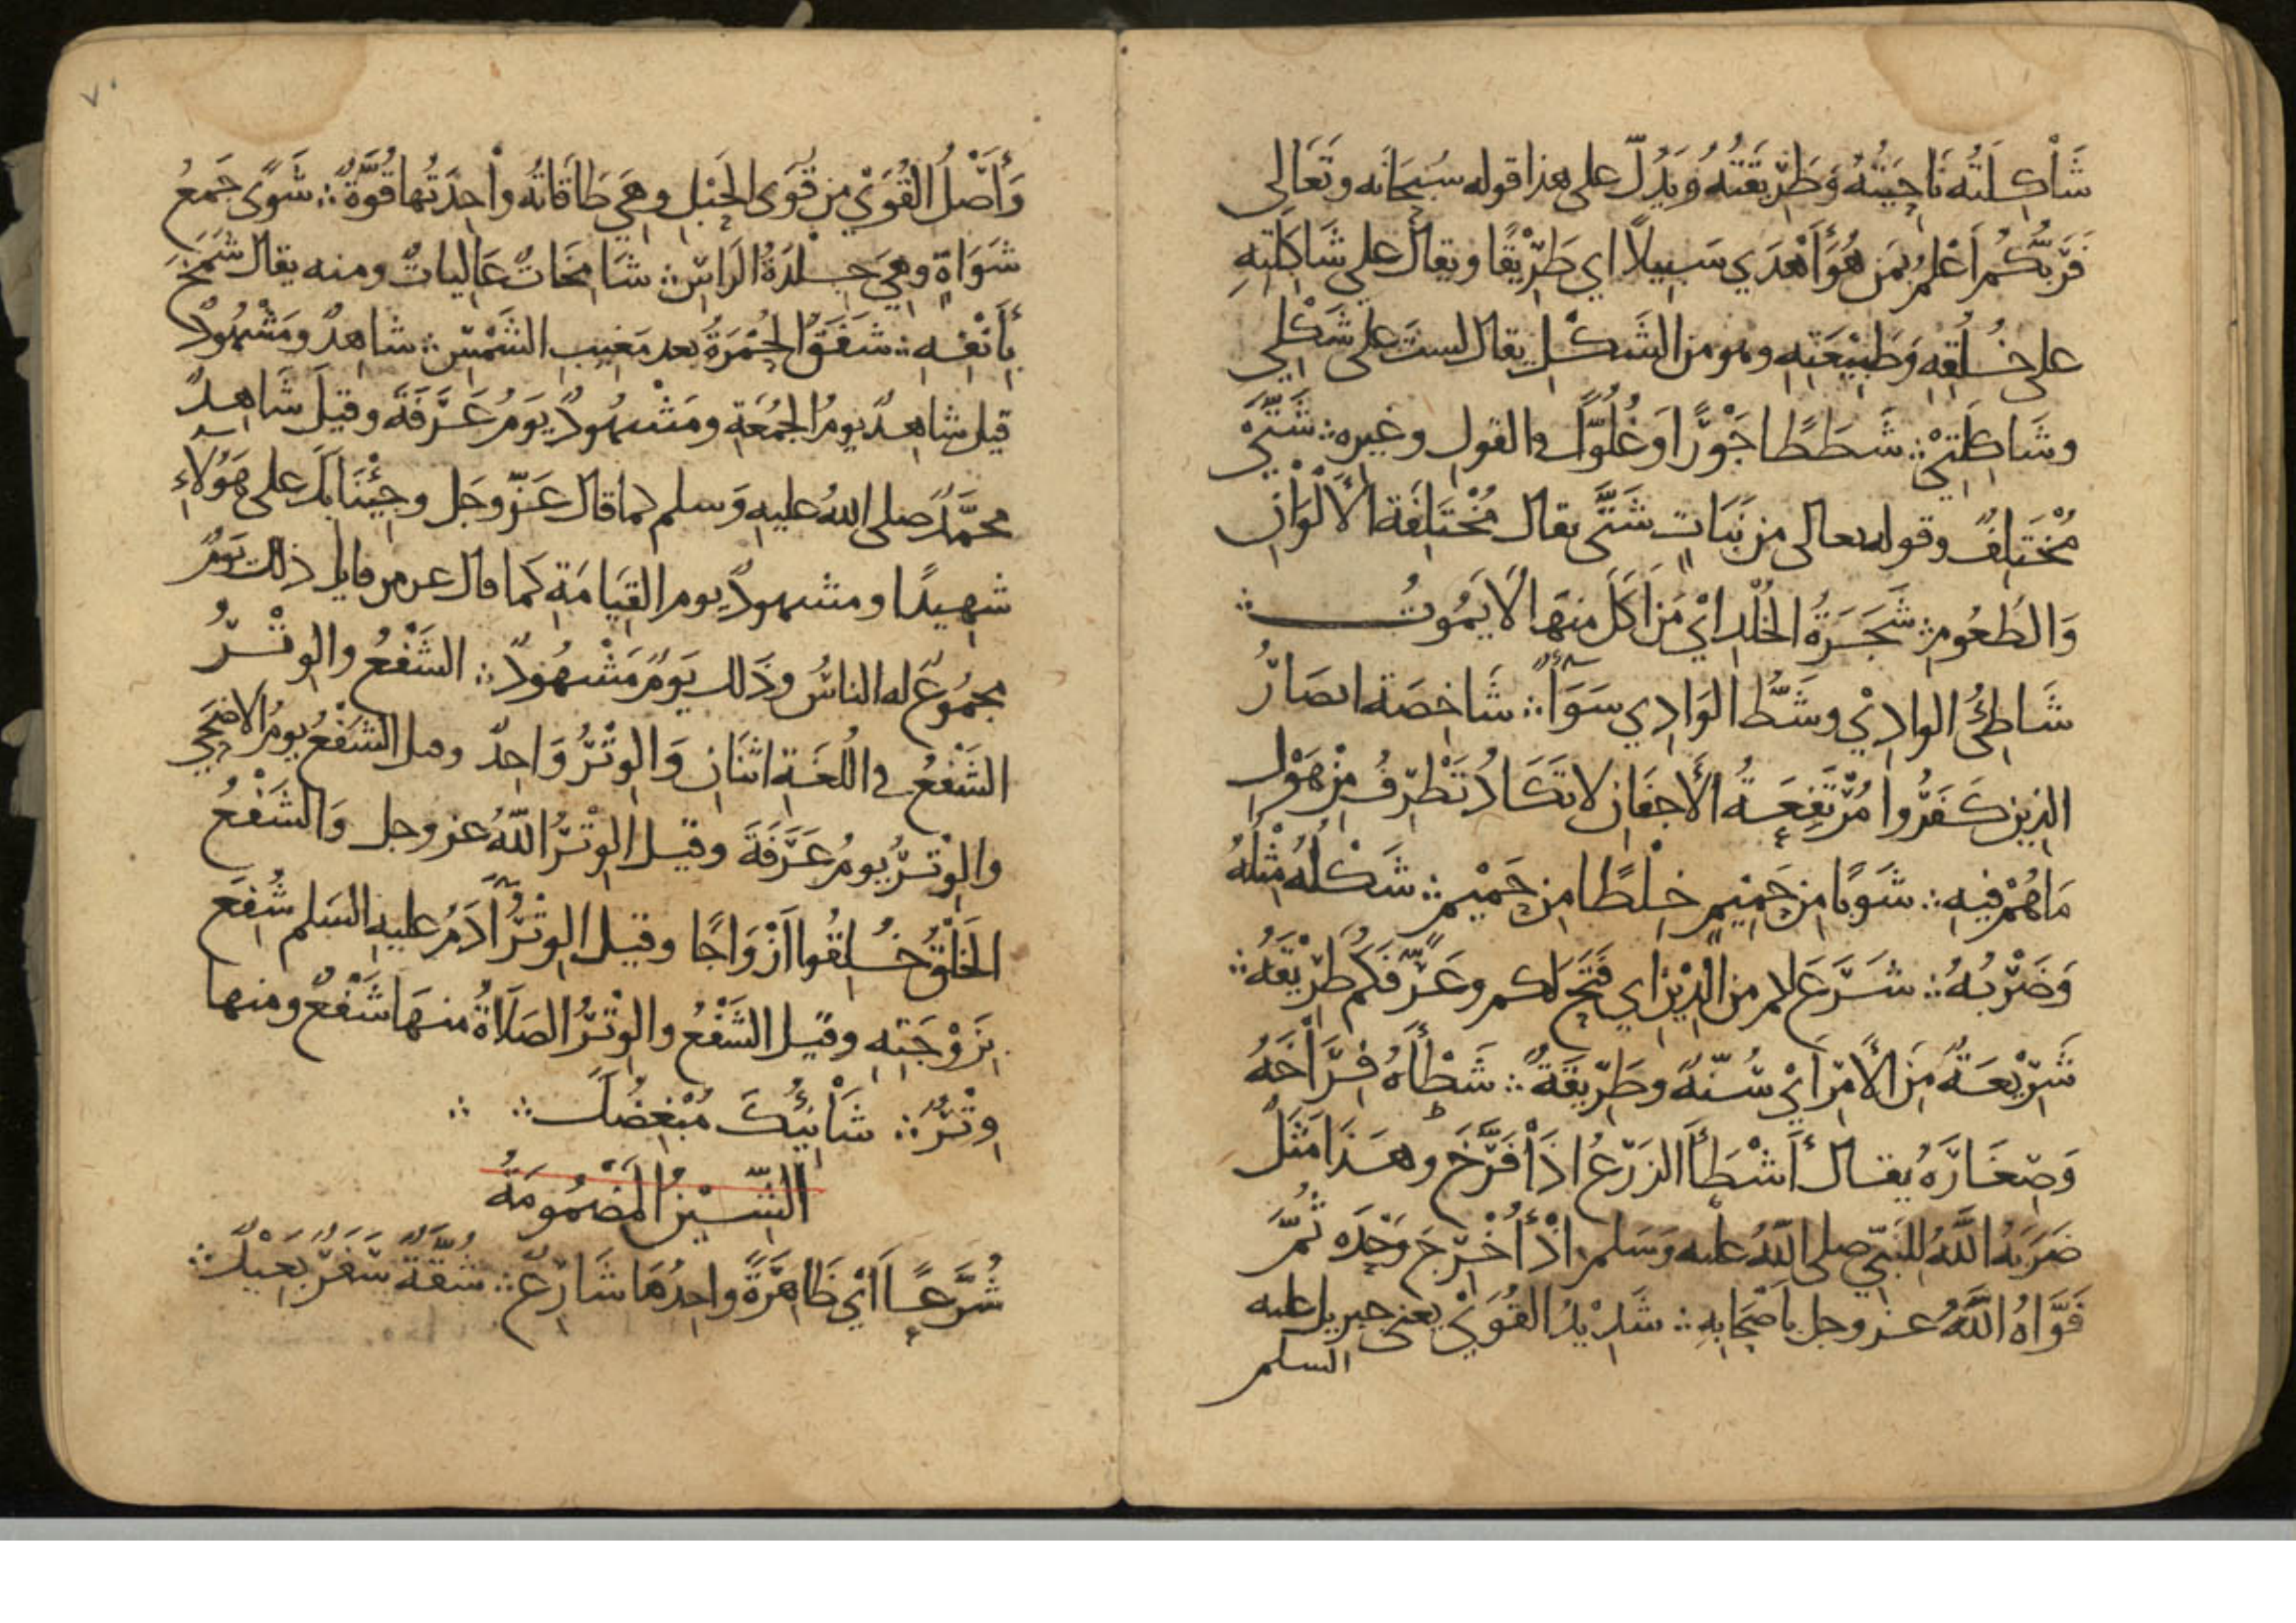 شَاكِلَتُه نَاحِيَتُهُ وَطَرِيقَتُهُ وَيَدُلّ على هذا قوله سُبحَانَه وتَعَالى
فَرَبُّكُم أَعْلَمُ بمَن هُوَ أَهْدَي سَبِيلاً اي طَرِيْقًا ويقال على شَاكِلَتِهِ
على خُلُقِهِ وَطَبِيْعَتِهِ وهو من الشَكْلِ يقال لستَ على شَكْلِي
وشَاكِلَتِيْ ∴ شَطَطًا جَوْرًا وَغُلُوًّا في القولِ وغيرِه ∴ شَتَّى
مُخْتَلِفٌ وقوله تعالى من نَبَاتٍ شَتَّى يقال مُخْتَلِفَة الأَلْوَانِ
وَالطُعُومِ ∴ شَجَرَةُ الخُلْدِ ايْ مَن اَكَلَ مِنهَا لَا يَمُوتُ ∴
شَاطِئُ الوادِيْ وشَطُّ الوَادِي سَوَاءٌ ∴ شَاخِصَة ابصَارُ
الذين كَفَرُوا مُرْتَفِعَةُ الأَجفَانِ لا تَكَادُ تَطْرِفُ مِنْ هَوْلِ
مَا هُمْ فِيهِ ∴ شَوبًا مِن حَمِيْمٍ خِلْطًا مِن حَمِيْمٍ ∴ شَكْلُهُ مِثْلُهُ
وَضَرْبُهُ ∴ شَرَعَ لكم من الدِيْنِ اي فَتَحَ لكم وعَرَّفَكُم طَرِيْقَهُ ∴
شَرِيْعَةٌ مِنَ الأَمْرِ اَيْ سُنّة وطَرِيْقَةٌ ∴ شَطْأَهُ فِرَاخَهُ
وَصِغَارَهُ يقال أَشْطَأَ الزَرْعُ اذَا فَرَّخَ وهَذَا مَثَلٌ
ضَرَبَهُ اللهُ للنَبِيّ صلى اللهُ عليه وَسَلم اذْ أُخْرِجَ وَحْدَه ثُمَّ
قَوَّاهُ اللهُ عز وجل بأَصْحَابِهِ ∴ شَدِيْدُ القُوَيْ يعني جبريل عليه
السلم
وَأَصْلُ القُوَيْ مِن قُوَى الحَبْلِ وهِيَ طَاقَاتُه واحِدَتُها قُوَّةٌ ∴ شَوًى جَمعُ
شَوَاةٍ وهِيَ جِلْدَةُ الرَأسِ ∴ شَامِخَاتٌ عَالِيَاتٌ ومنه يقال شَمَخَ
بِأَنْفِهِ ∴ شَفَقُ الحُمْرَةُ بعد مَغِيبِ الشَمْسِ ∴ شاهِدٌ ومَشْهُودٌ
قيل شاهِدٌ يومُ الجُمُعَةِ ومَشْهُودٌ يَومُ عَرَفَةَ وقيلَ شَاهِدٌ
محمَّدٌ صلى اللهُ عليهِ وَسلم كما قال عَزّ وجَل وجِئْنَا بِكَ على هَؤُلاءِ
شهِيدًا ومشهودٌ يوم القِيَامَةِ كمَا قال عز من قايل ذلك يَومٌ
مجمُوعٌ له الناسُ وذَلك يَومٌ مَشْهُودٌ ∴ الشَفْعُ والوِتْرُ
الشَفْعُ في اللُغَةِ اثنَانِ وَالوِتْرُ وَاحِدٌ وقيل الشَفْعُ يومُ الاضحَي
والوِتْرُ يومُ عَرَفَةَ وقيل الوِتْرُ اللهُ عز وجل وَالشَفْعُ
الخَلْقُ خُلِقُوا أَزْوَاجًا وقيل الوِتْرُ آدَمُ عليه السَلم شُفِعَ
بِزَوْجَتِهِ وقيل الشَفْعُ والوِتْرُ الصَلَاةُ منهَا شَفْعٌ ومنها
وِتْرٌ ∴ شَانِئَكَ مُبْغِضَكَ ∴ ∴
الشِيْنُ المَضمُومَةُ
شُرَّعًا اَيْ ظَاهِرَةً واحِدُهَا شَارِعٌ ∴ شُقَّةٌ سَفَرٌ بَعِيْدٌ ∴
٧٠